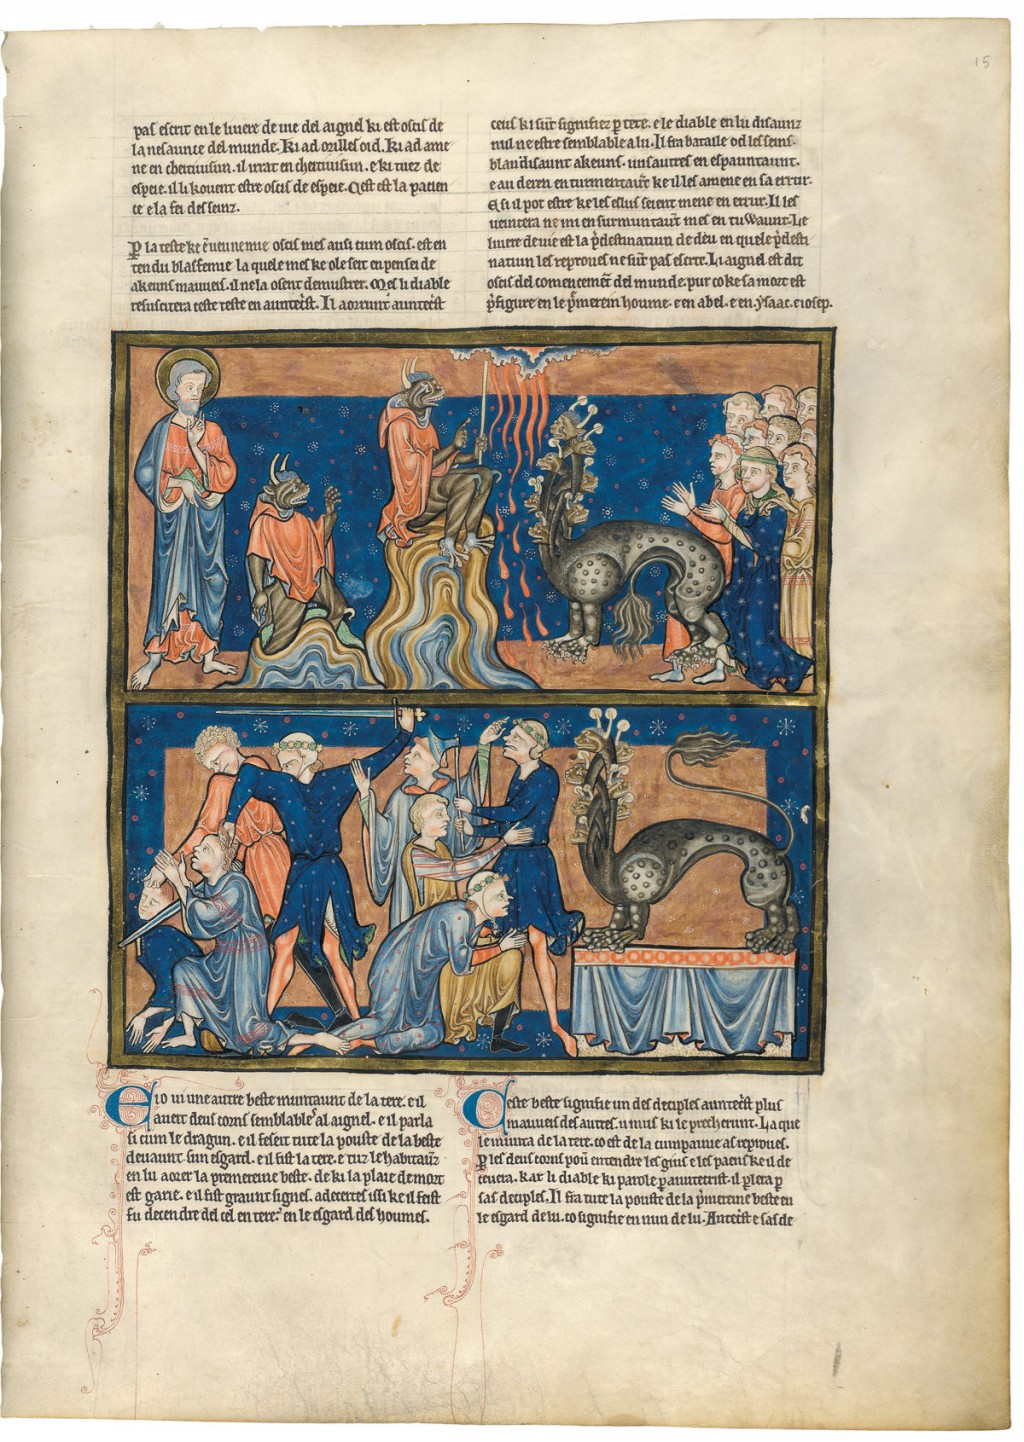 15
pas escrit en le livere de vie del aignel ki est oscis de
la nesaunce del munde. Ki ad orilles oid. Ki ad ame
ne en cheitivisun. il irrat en cheitivisun. e ki tuez de
espeie. il li kovent estre oscis de espeie. Cest est la pacien
ce e la fei des seinz.
P la teste ke e vene oscis mes ausi cum oscis. est en
tendu blasfemie la quele mes ke ole seit en pensei de
akeuns mauveis. il ne la osent demustrer. Mes li diable
resuscitera ceste teste en auntecst. Il aorrunt auntecst
ceus ki sunt signifiez p tere. e le diable en lu disaunz
nul ne estre semblable a lu. Il fra bataile od les seins.
blandisaunt akeuns. un sautres en espauntaunt.
e au deren en turmentaunt ke il les amene en sa errur.
E si il pot estre ke les ellus seient mene en errur. Il les
veintera ne mi en surmuntaunt mes en tuwaunt. Le
livere de vie est la pdestinatiun de deu en quele pdesti
natiun les reproves ne sunt pas escrit. Li aignel est dit
oscis del comencement del munde. pur co ke sa mort est
pfigure en le pmerein houme. e en abel. e en ysaac. e iosep.
E io vi une autre beste muntaunt de la tere. e il
aveit deus corns semblable al aignel. e il parla
si cum le dragun. e il feseit tute la pouste de la beste
devaunt sun esgard. e il fist la tere. e tuz le habitaunz
en lu aorer la premereine beste. de ki la plaie de mort
est garie. e il fist graunt signes. adecertes issi ke il feist
fu decendre del cel en tere. en le esgard des houmes.
Ceste beste signifie un des deciples auntecst plus
mauveis des autres. u mus ki le precherunt. La que
le munta de la tere. co est de la cumpainie as reproves.
P les deus corns pou entendre les gius e les paens ke il de
cevera. kar li diable ki parole p auntecrist. il plera p
sas deciples. Il fra tute la pouste de la pmereine beste en
le esgard de lu. co signifie en nun de lu. Antecst e sas de